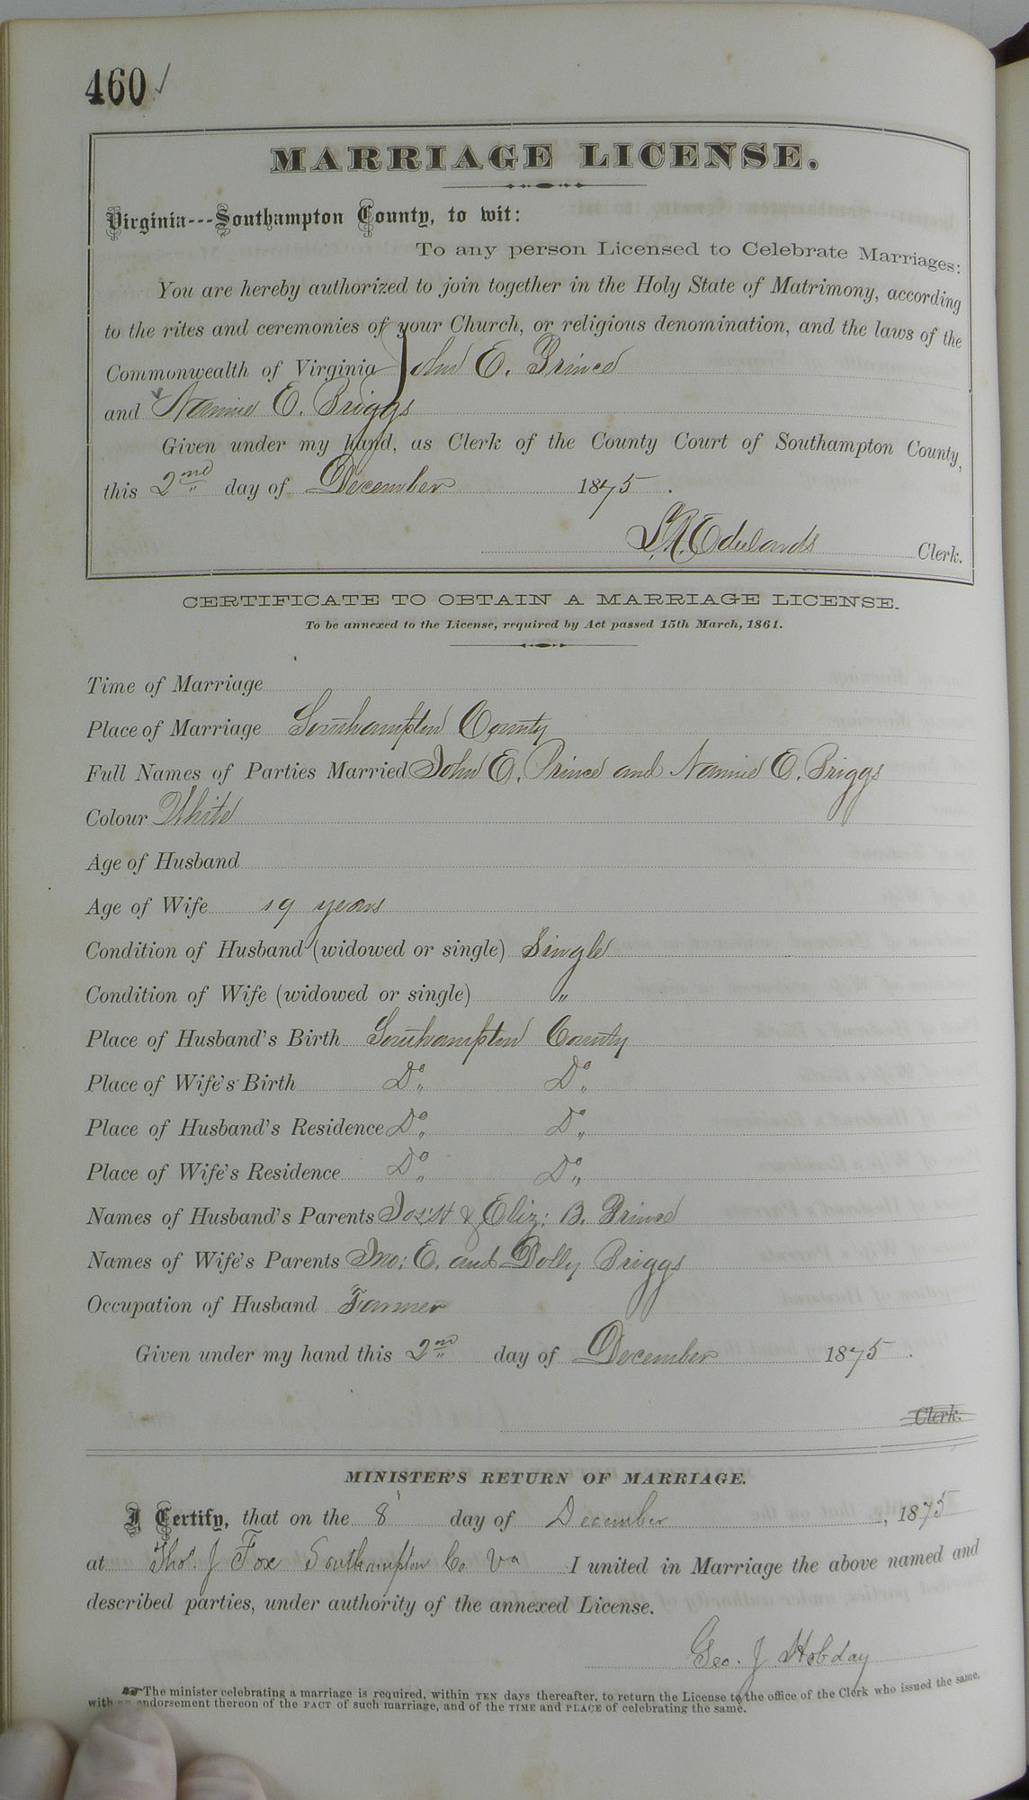 460 ✓
MARRIAGE LICENSE.
Virginia---Southampton County, to wit:
To any person Licensed to Celebrate Marriages:
You are hereby authorized to join together in the Holy State of Matrimony, according
to the rites and ceremonies of your Church, or religious denomination, and the laws of the
Commonwealth of Virginia John E. Prince
and Nannie E. Briggs
Given under my hand, as Clerk of the County Court of Southampton County,
this 2nd day of December 1875.
L. R. Edwards Clerk.
CERTIFICATE TO OBTAIN A MARRIAGE LICENSE.
To be annexed to the License, required by Act passed 15th March, 1861.
Time of Marriage
Place of Marriage Southampton County
Full Names of Parties Married John E. Prince and Nannie E. Briggs
Colour White
Age of Husband
Age of Wife 19 years
Condition of Husband (widowed or single) Single
Condition of Wife (widowed or single) "
Place of Husband's Birth Southampton County
Place of Wife's Birth Do Do
Place of Husband's Residence Do Do
Place of Wife's Residence Do Do
Names of Husband's Parents & Eliz: B. Prince
Names of Wife's Parents Jno: E. and Dolly Briggs
Occupation of Husband Farmer
Given under my hand this 2nd day of December 1875.
Clerk.
MINISTER'S RETURN OF MARRIAGE.
I Certify, that on the 8 day of December, 1875
at Thos. J Fox Southampton Co Va I united in Marriage the above named and
described parties, under authority of the annexed License.
Geo. J Hobday
The minister celebrating a marriage is required, within TEN days thereafter, to return the License to the office of the Clerk who issued the same,
with an endorsement thereon of the FACT of such marriage, and of the TIME and PLACE of celebrating the same.